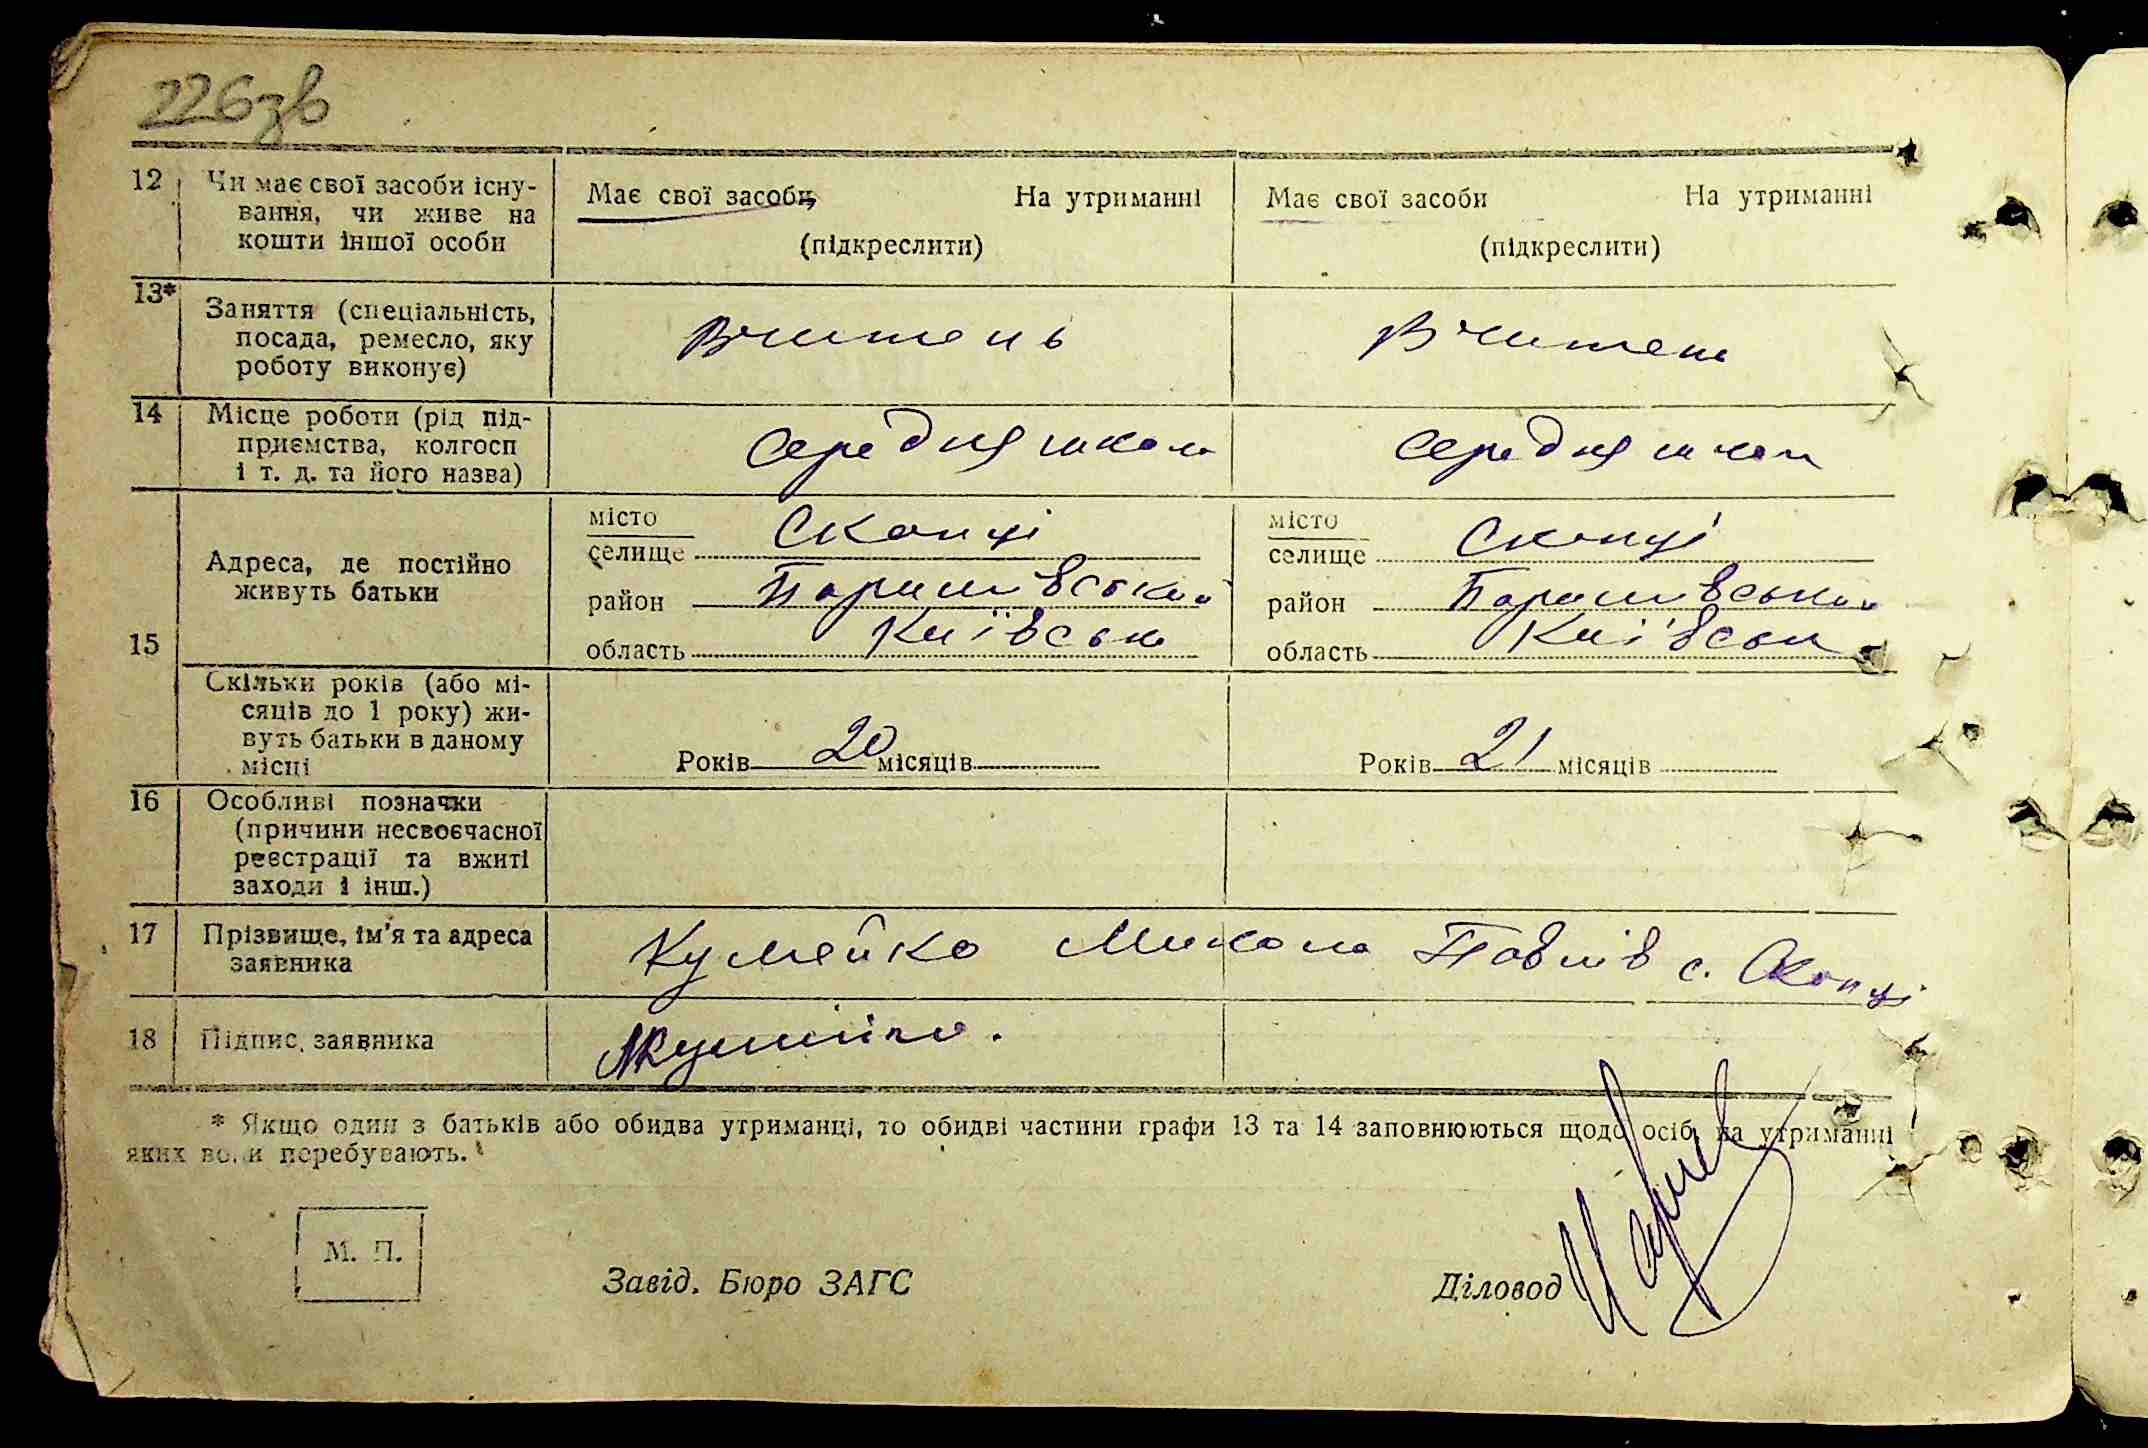 226зв
12 Чи має свої засоби існу-
вання, чи живе на
кошти іншої особи
Має свої засоби На утриманні
(підкреслити)
Має свої засоби На утриманні
(підкреслити)
13* Заняття (спеціальність,
посада, ремесло, яку
роботу виконує)
Вчитель
Вчитель
14 Місце роботи (рід під-
приємства, колгосп
і т. д. та його назва)
Середня школа
Середня школа
15 Адреса, де постійно
живуть батьки
місто
селище Скопці
район Баришівський
область Київськ
місто
селище Скопці
район Баришівський
область Київськ
Скільки років (або мі-
сяців до 1 року) жи-
вуть батьки в даному
місці
Років 20 місяців
Років 21 місяців
16 Особливі позначки
(причини несвоєчасної
реєстрації та вжиті
заходи і інш.)
17 Прізвище, ім'я та адреса
заявника
Кумейко Микола Павлів с. Скопці
18 Підпис заявника
* Якщо один з батьків або обидва утриманці, то обидві частини графи 13 та 14 заповнюються щодо осіб, на утриманні
яких вони перебувають.
М. П.
Завід. Бюро ЗАГС
Діловод